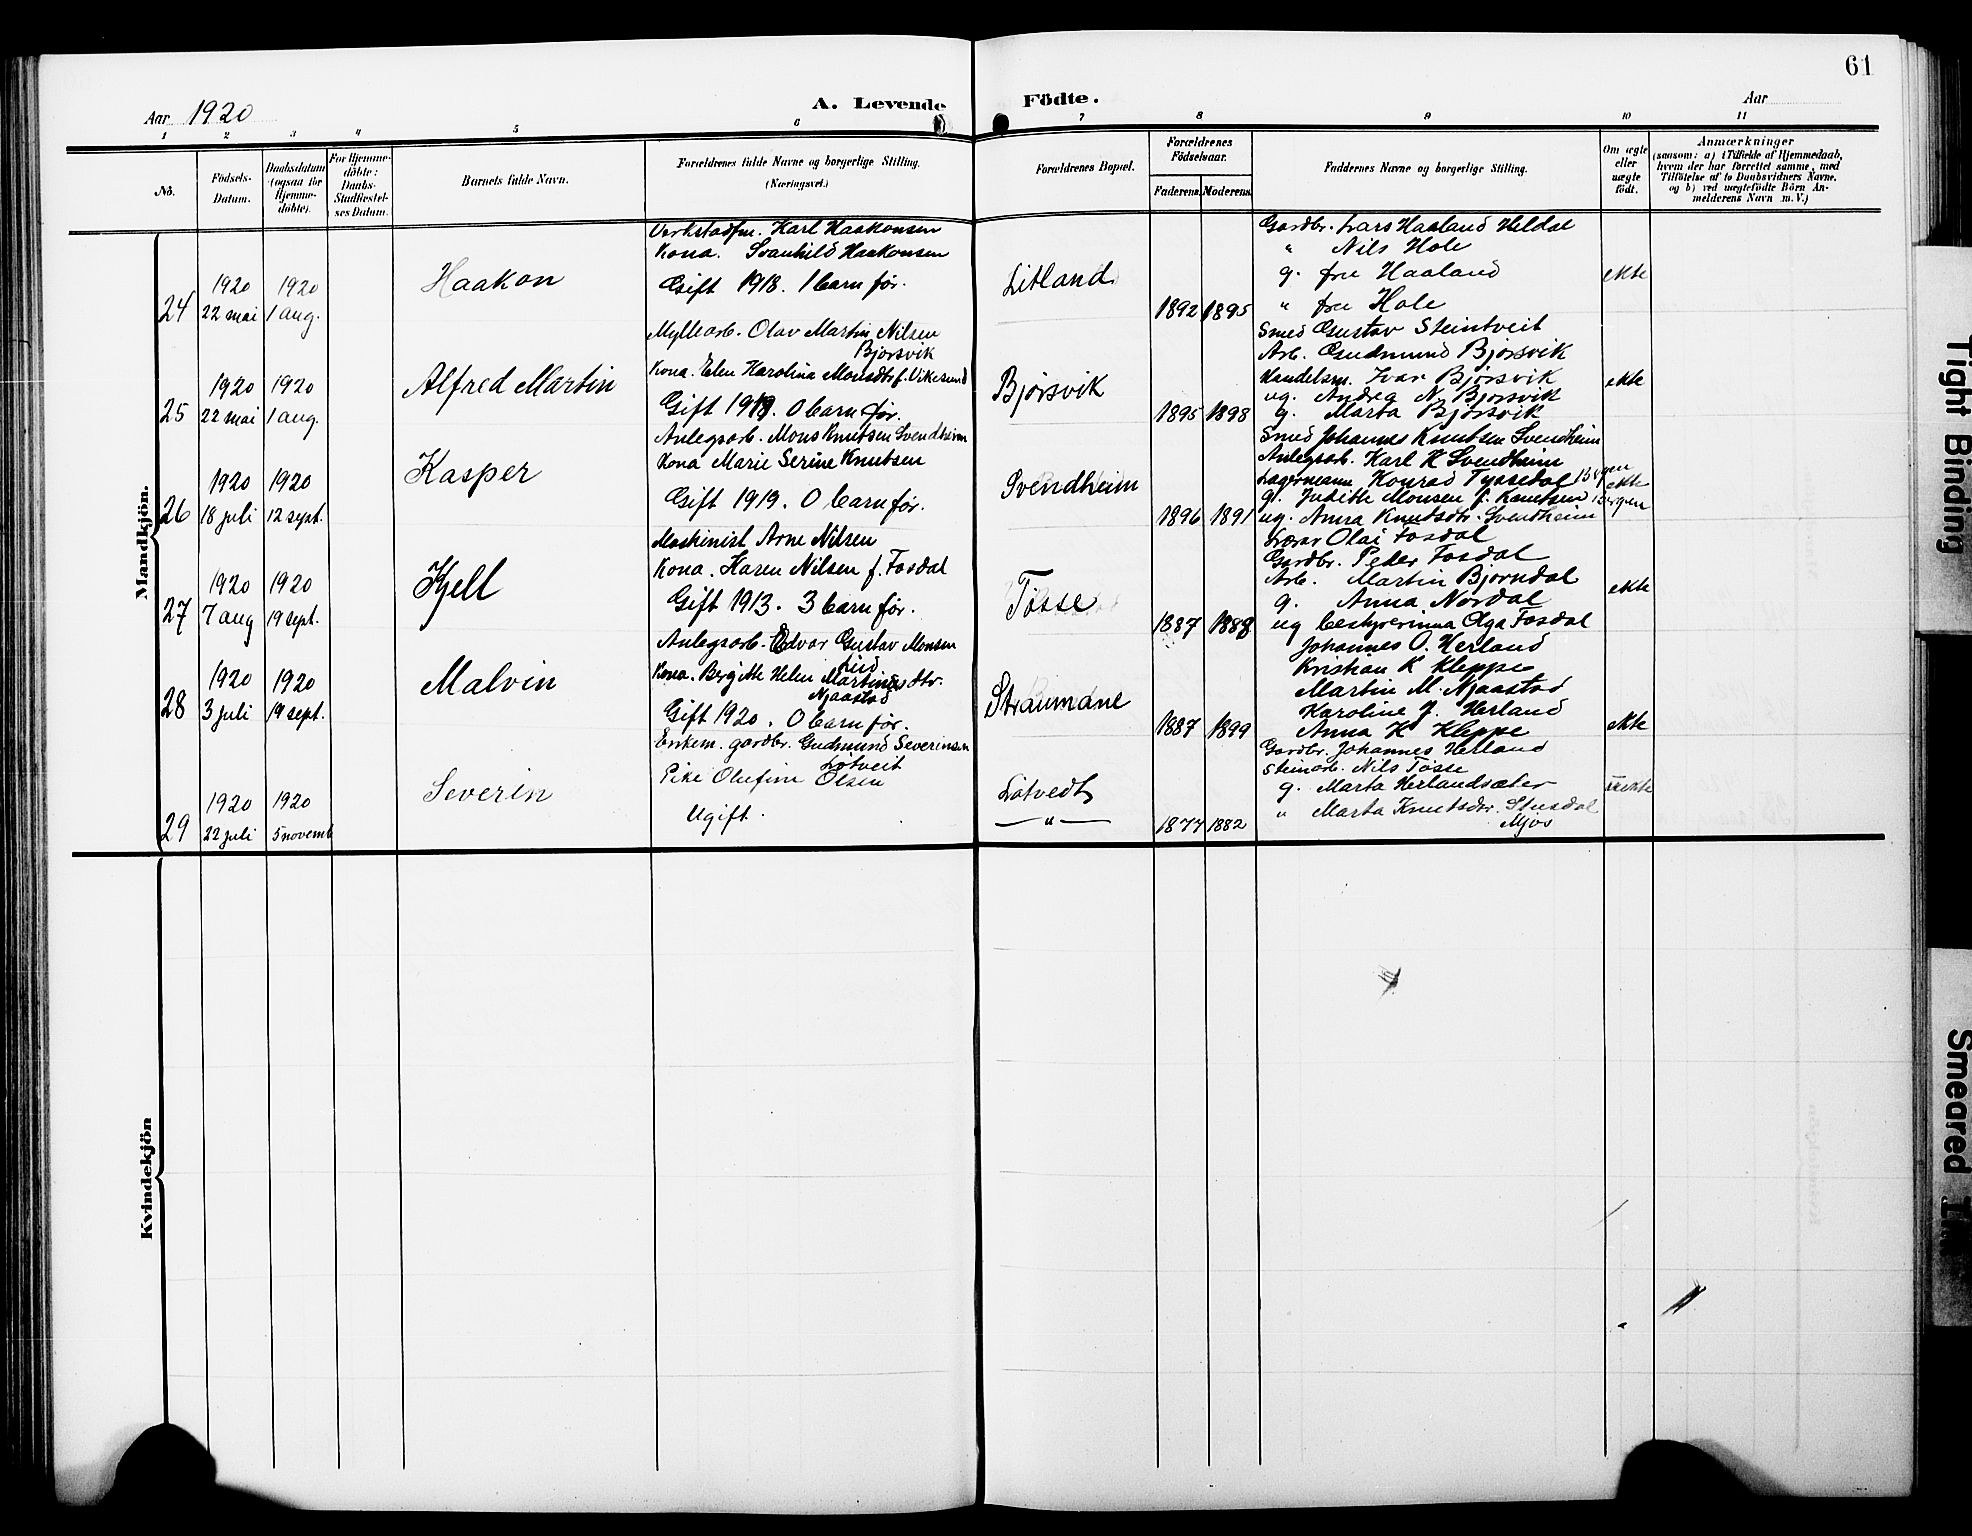 61
Aar 1920
A. Levende Födte.
Aar
1 2 3 4 5 6 7 8 9 10 11
No.
Födsels-Datum.
Daabsdatum (ogsaa för Hjemme-döbte).
For Hjemme-döbte: Daabs-Stadfæstel-ses Datum.
Barnets fulde Navn.
Forældrenes fulde Navne og borgerlige Stilling. (Næringsvei.)
Forældrenes Bopæl.
Forældrenes Födselsaar.
Faderens. Moderens.
Faddernes Navne og borgerlige Stilling.
Om ægte eller uægte födt.
Anmærkninger
(saasom: a) i Tilfælde af Hjemmedaab,
hvem der har forrettet samme, med
Tilföielse af to Daabsvidners Navne,
og b) ved uægtefödte Börn An-
melderens Navn m.V.)
Mandkjön.
24
1920 22 mai
1920 1 aug.
Haakon
Verkstadfm. Karl Haakonsen
Kona. Svanhild Haakonsen
Gift 1918. 1 barn før.
Litland
1892 1895
Gardbr. Lars Haaland Heldal
" Nils Hole
g. fru Haaland
" fru Hole
Smed Gustav Steintveit
ekte
25
1920 22 mai
1920 1 aug.
Alfred Martin
Myllearb. Olav Martin Nilsen
Bjørsvik
Kona. Elen Karolina Monsdtr f. Vikesund
Gift 1919. 0 barn før.
Bjørsvik
1895 1898
Arb. Gudmund Bjørsvik
Handelsm. Ivar Bjørsvik
ug. Andrea N. Bjørsvik
g. Marta Bjørsvik
ekte
26
1920 18 juli
1920 12 sept.
Kasper
Anlegsarb. Mons Knutsen Svendheim
Kona Marie Serine Knutsen
Gift 1919. 0 barn før.
Svendheim
1896 1891
Smed Johannes Knutsen Svendheim
Anlegsarb. Karl K Svendheim
Lagermann Konrad Tyssedal Bergen
g. Judith Monsen f. Knutsen Bergen
ug. Anna Knudsdtr. Svendheim
ekte
27
1920 7 aug
1920 19 sept.
Kjell
Maskinist Arne Nilsen
Kona. Karen Nilsen f. Fosdal
Gift 1913. 3 barn før.
Tøsse
1887 1888
Lærar Olai Fosdal
Gardbr. Peder Fosdal
Arb. Martin Bjørndal
g. Anna Nordal
ug bestyrerinna Olga Fosdal
ekte
28
1920 3 juli
1920 19 sept.
Malvin
Anlegsarb. Edvar Gustav Monsen
Lied
Kona. Bergitte Helene Martinusdtr.
Njaastad
Gift 1920. 0 barn før.
Straumane
1887 1899
Johannes O. Herland
Kristian K Kleppe
Martin M. Njaastad
Karoline J. Herland
Anna K Kleppe
ekte
29
1920 22 juli
1920 5 novemb
Severin
Enkem. gardbr. Gudmund Severinsen
Løtveit
Pike Olufine Olsen
Ugift.
Løtvedt
— " —
1877 1882
Gardbr. Johannes Herland
Steinarb. Nils Tøsse
g. Marta Herlandsæter
" Marta Knutsdtr. Stusdal
Mjøs
uekte
Kvindekjön
Tight Binding
Smeared